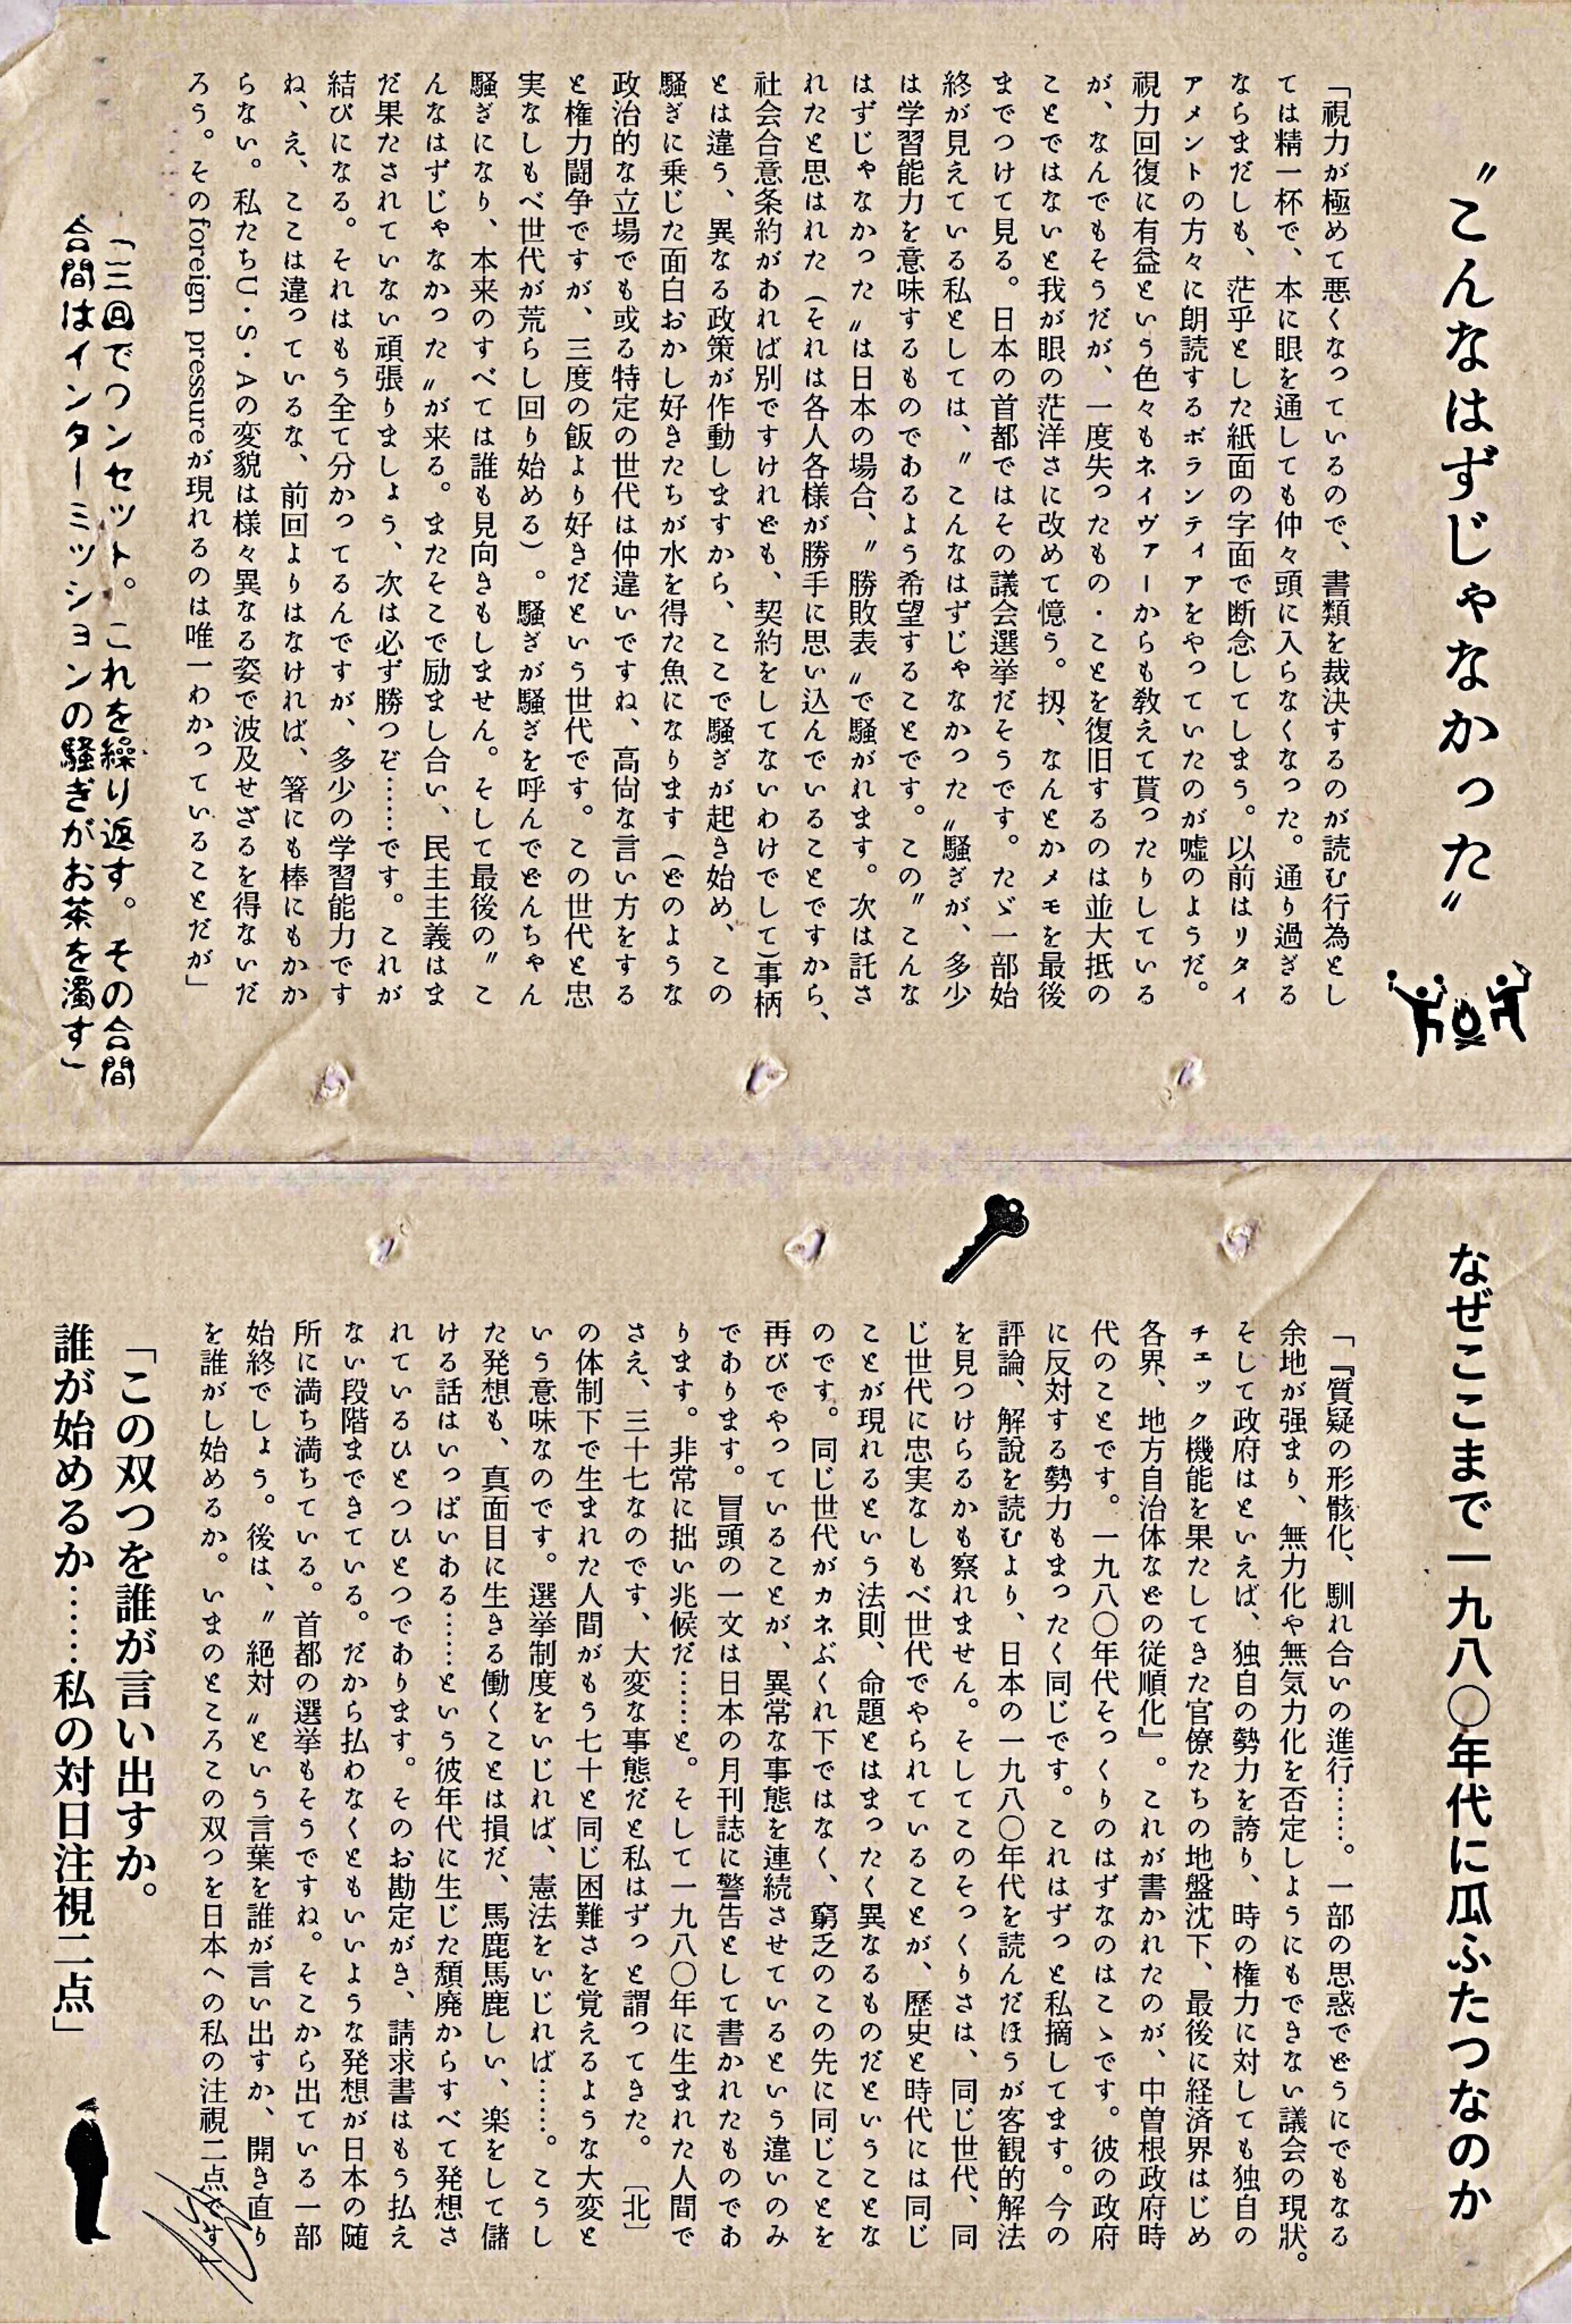 〝こんなはずじゃなかった〟
「視力が極めて悪くなっているので、書類を裁決するのが読む行為とし
ては精一杯で、本に眼を通しても仲々頭に入らなくなった。通り過ぎる
ならまだしも、茫乎とした紙面の字面で断念してしまう。以前はリタイ
アメントの方々に朗読するボランティアをやっていたのが嘘のようだ。
視力回復に有益という色々もネイヴァーからも教えて貰ったりしている
が、なんでもそうだが、一度失ったもの・ことを復旧するのは並大抵の
ことではないと我が眼の茫洋さに改めて憶う。扨、なんとかメモを最後
までつけて見る。日本の首都ではその議会選挙だそうです。たゞ一部始
終が見えている私としては、〝こんなはずじゃなかった〟騒ぎが、多少
は学習能力を意味するものであるよう希望することです。この〝こんな
はずじゃなかった〟は日本の場合、〝勝敗表〟で騒がれます。次は託さ
れたと思はれた（それは各人各様が勝手に思い込んでいることですから、
社会合意条約があれば別ですけれども、契約をしてないわけでして）事柄
とは違う、異なる政策が作動しますから、ここで騒ぎが起き始め、この
騒ぎに乗じた面白おかし好きたちが水を得た魚になります（どのような
政治的な立場でも或る特定の世代は仲違いですね、高尚な言い方をする
と権力闘争ですが、三度の飯より好きだという世代です。この世代と忠
実なしもべ世代が荒らし回り始める）。騒ぎが騒ぎを呼んでどんちゃん
騒ぎになり、本来のすべては誰も見向きもしません。そして最後の〝こ
んなはずじゃなかった〟が来る。またそこで励まし合い、民主主義はま
だ果たされていない頑張りましょう、次は必ず勝つぞ……です。これが
結びになる。それはもう全て分かってるんですが、多少の学習能力です
ね、え、ここは違っているな、前回よりはなければ、箸にも棒にもかか
らない。私たちU・S・Aの変貌は様々異なる姿で波及せざるを得ないだ
ろう。そのforeign pressureが現れるのは唯一わかっていることだが」
「三回でワンセット。これを繰り返す。その合間
合間はインターミッションの騒ぎがお茶を濁す」
なぜここまで一九八〇年代に瓜ふたつなのか
「『質疑の形骸化、馴れ合いの進行……。一部の思惑でどうにでもなる
余地が强まり、無力化や無気力化を否定しようにもできない議会の現狀。
そして政府はといえば、独自の勢力を誇り、時の権力に対しても独自の
チェック機能を果たしてきた官僚たちの地盤沈下、最後に経済界はじめ
各界、地方自治体などの従順化』。これが書かれたのが、中曽根政府時
代のことです。一九八〇年代そっくりのはずなのはこゝです。彼の政府
に反対する勢力もまったく同じです。これはずっと私摘してます。今の
評論、解説を読むより、日本の一九八〇年代を読んだほうが客観的解法
を見つけらるかも察れません。そしてこのそっくりさは、同じ世代、同
じ世代に忠実なしもべ世代でやられていることが、歴史と時代には同じ
ことが現れるという法則、命題とはまったく異なるものだということな
のです。同じ世代がカネぶくれ下ではなく、窮乏のこの先に同じことを
再びでやっていることが、異常な事態を連続させているという違いのみ
であります。冒頭の一文は日本の月刊誌に警告として書かれたものであ
ります。非常に拙い兆候だ……と。そして一九八〇年に生まれた人間で
さえ、三十七なのです、大変な事態だと私はずっと謂ってきた。［北］
の体制下で生まれた人間がもう七十と同じ困難さを覚えるような大変と
いう意味なのです。選挙制度をいじれば、憲法をいじれば……。こうし
た発想も、真面目に生きる働くことは損だ、馬鹿馬鹿しい、楽をして儲
ける話はいっぱいある……という彼年代に生じた頽廃からすべて発想さ
れているひとつひとつであります。そのお勘定がき、請求書はもう払え
ない段階まできている。だから払わなくともいいような発想が日本の随
所に満ち満ちている。首都の選挙もそうですね。そこから出ている一部
始終でしょう。後は、〝絶対〟という言葉を誰が言い出すか、開き直り
を誰がし始めるか。いまのところこの双つを日本への私の注視二点です
「この双つを誰が言い出すか。
誰が始めるか……私の対日注視二点」